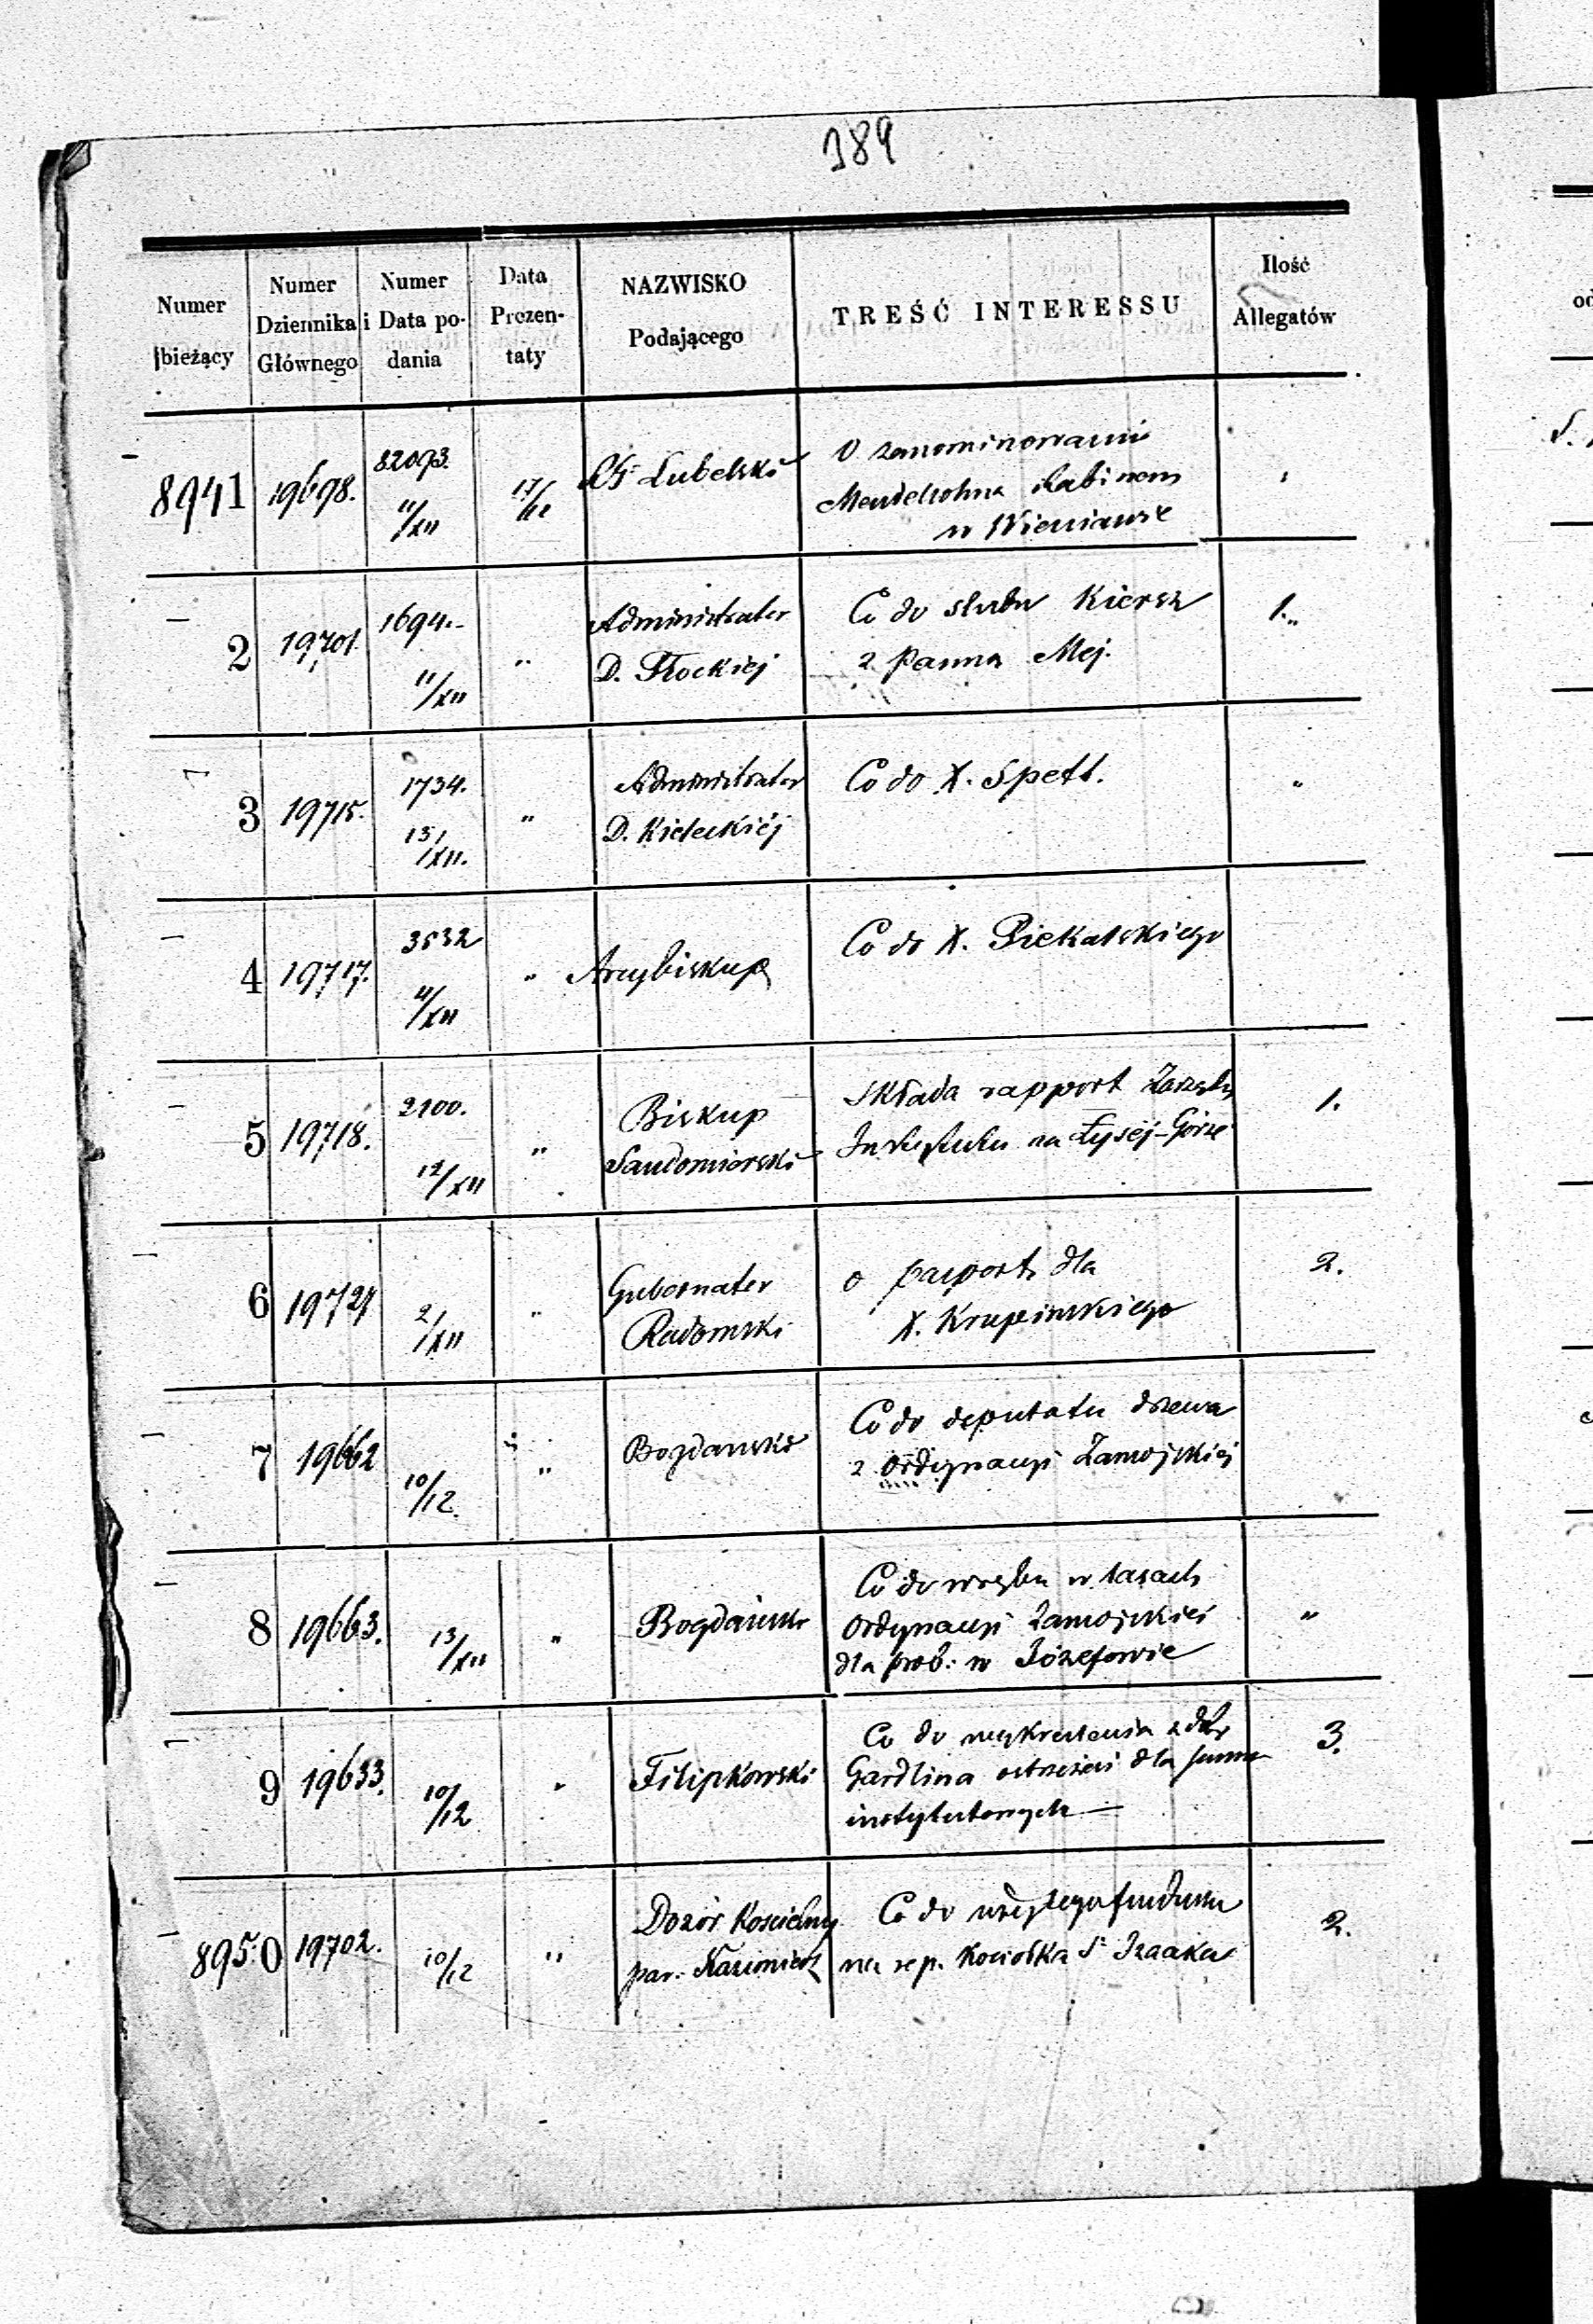 189
Numer bieżący
Numer Dziennika Głównego
Numer i Data podania
Data Prezentaty
NAZWISKO Podającego
TREŚĆ INTERESSU
Ilość Allegatów
8941 19698. 82093. 11/XII 17/12 Lubelski O zanominowanie
Mendelsohna Rabinem
w Wieniawie
2 19701. 1694. 11/XII " Administrator Co do ślubu Kiersz 1.
D. Płockiej z Panną Mej.
3 19715. 1734. 13/XII. " Administrator Co do X. Spett. "
D. Kieleckiéj
4 19717. 3532 11/XII " Arcybiskup Co do X. Piekarskiego
5 19718. 2100. 12/XII " Biskup Składa rapport Zarządu 1.
Sandomierski Instytutu na Łysej-Górze
6 19721 2/XII " Gubernator o paszport dla 2.
Radomski X. Krupińskiego
7 19662 10/12. " Bogdański Co do deputatu drzewa
z Ordynacyi Zamojskiej
8 19663. 13/XII " Bogdański Co do wrębu w lasach "
Ordynacyi Zamojskiej
dla prob: w Józefowie
9 19633. 10/12 " Filipkowski Co do wykreślenia z dóbr 3.
Gardlina ostrzeżeń dla summ
instytutowych —
8950 19702. 10/12 " Dozór Kościelny Co do użytego funduszu 2.
par: Kazimierz na rep. Kościołka Sº Izaaka